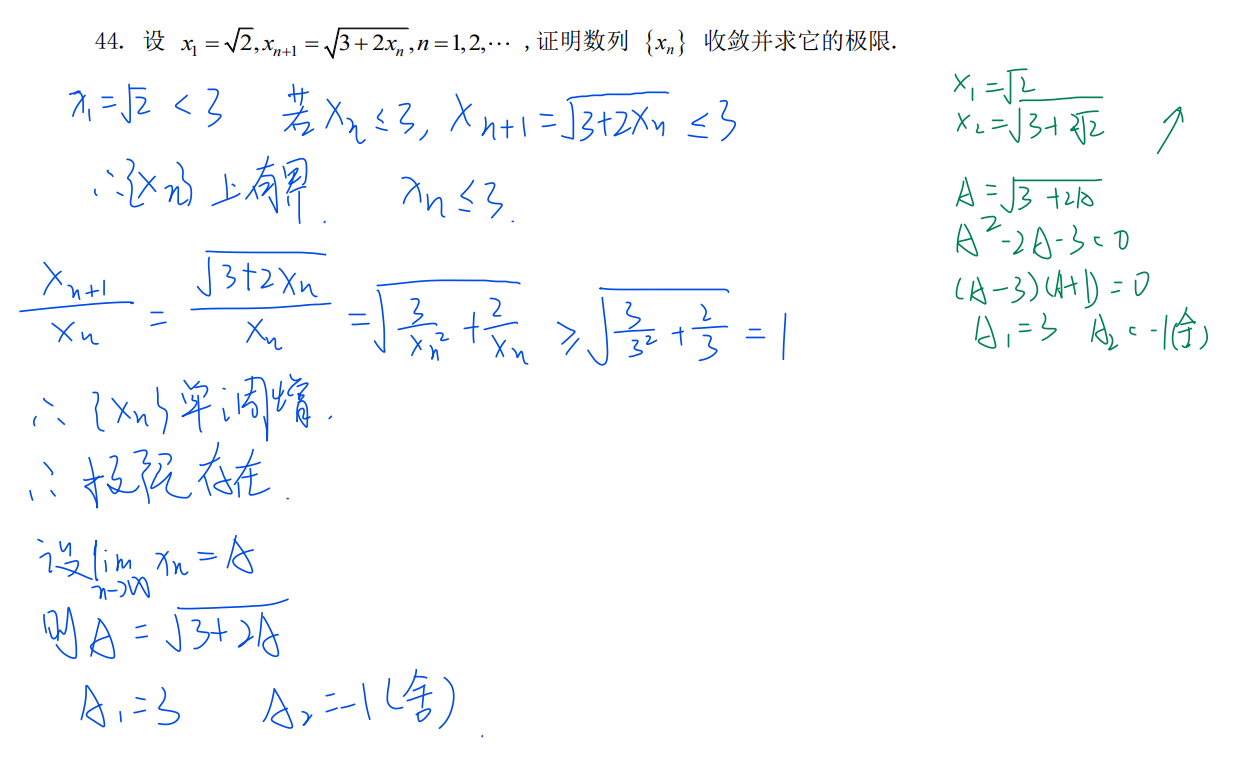 44. 设 x₁ = √2, xₙ₊₁ = √(3 + 2xₙ), n = 1, 2, ⋯ , 证明数列 {xₙ} 收敛并求它的极限.
x₁ = √2 < 3 若 xₙ ≤ 3, xₙ₊₁ = √(3+2xₙ) ≤ 3
∴ {xₙ} 上有界. xₙ ≤ 3.
xₙ₊₁/xₙ = √(3+2xₙ)/xₙ = √(3/xₙ² + 2/xₙ) ≥ √(3/3² + 2/3) = 1
∴ {xₙ} 单调增.
∴ 极限存在.
设 lim n→∞ xₙ = A
则 A = √(3+2A)
A₁ = 3 A₂ = -1 (舍).
x₁ = √2
x₂ = √(3+2√2) ↗
A = √(3+2A)
A² - 2A - 3 = 0
(A-3)(A+1) = 0
A₁ = 3 A₂ = -1 (舍)